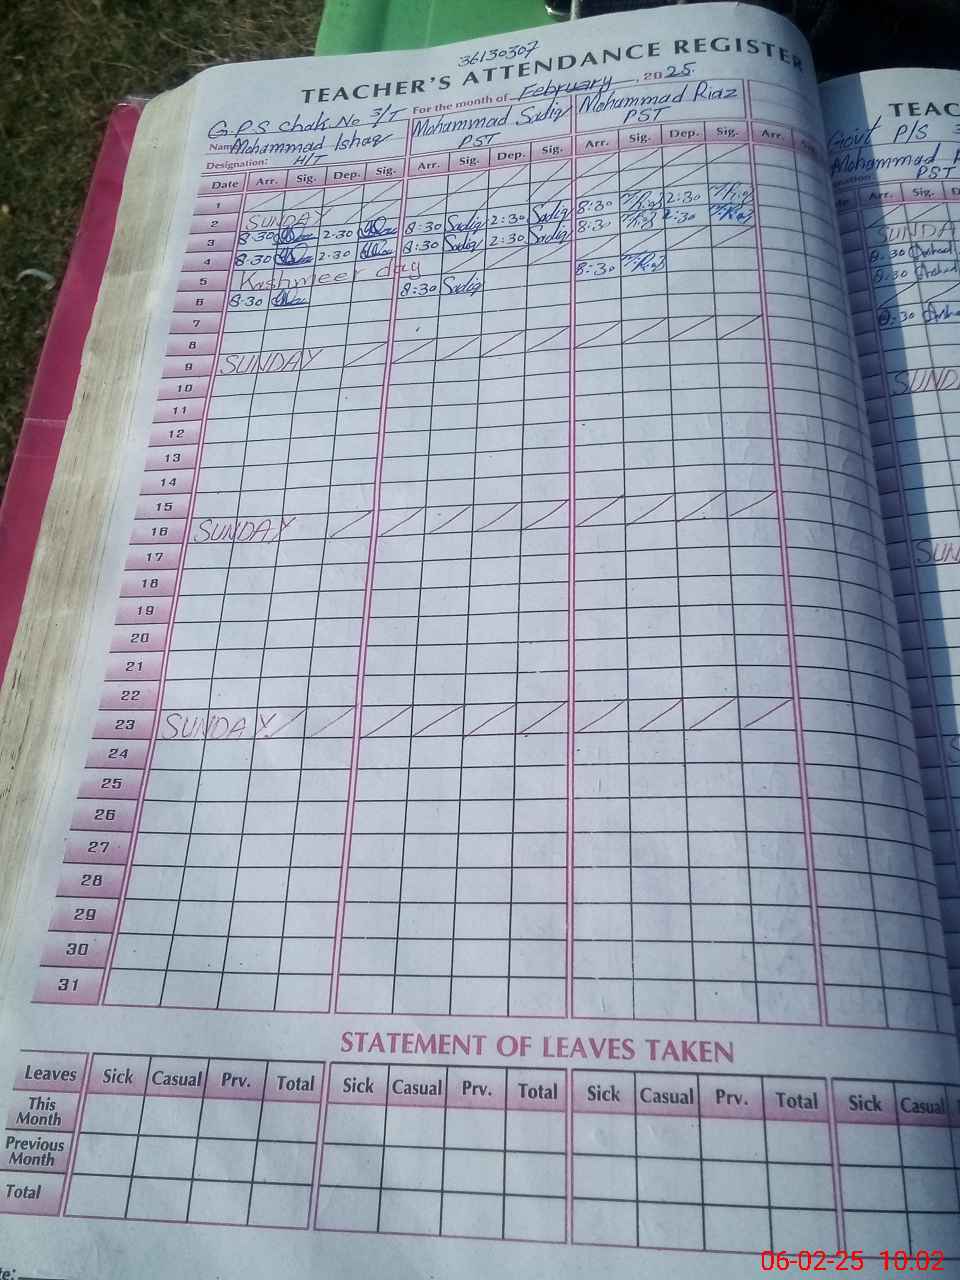 36130307
TEACHER'S ATTENDANCE REGISTER
For the month of February, 2025.
G.P.S Chak No 3/T
Name Mohammad Ishaq Mohammad Sadiq Mohammad Riaz
Designation: H/T PST PST
Date Arr. Sig. Dep. Sig. Arr. Sig. Dep. Sig. Arr. Sig. Dep. Sig. Arr.
1
2 SUNDAY
3 8:30 2:30 8:30 Sadiq 2:30 Sadiq 8:30 M.Riaz 2:30 M.Riaz
4 8:30 2:30 8:30 Sadiq 2:30 Sadiq 8:30 M.Riaz 2:30 M.Riaz
5 Kashmeer day
6 8:30 8:30 Sadiq 8:30 M.Riaz
7
8
9 SUNDAY
10
11
12
13
14
15
16 SUNDAY
17
18
19
20
21
22
23 SUNDAY
24
25
26
27
28
29
30
31
STATEMENT OF LEAVES TAKEN
Leaves Sick Casual Prv. Total Sick Casual Prv. Total Sick Casual Prv. Total Sick Casual
This Month
Previous Month
Total
TEAC
Govt P/S 3
Mohammad
PST
Arr. Sig. D
SUNDA
8:30 Arshad
8:30 Arshad
8:30 Arsha
SUND
SUN
06-02-25 10:02